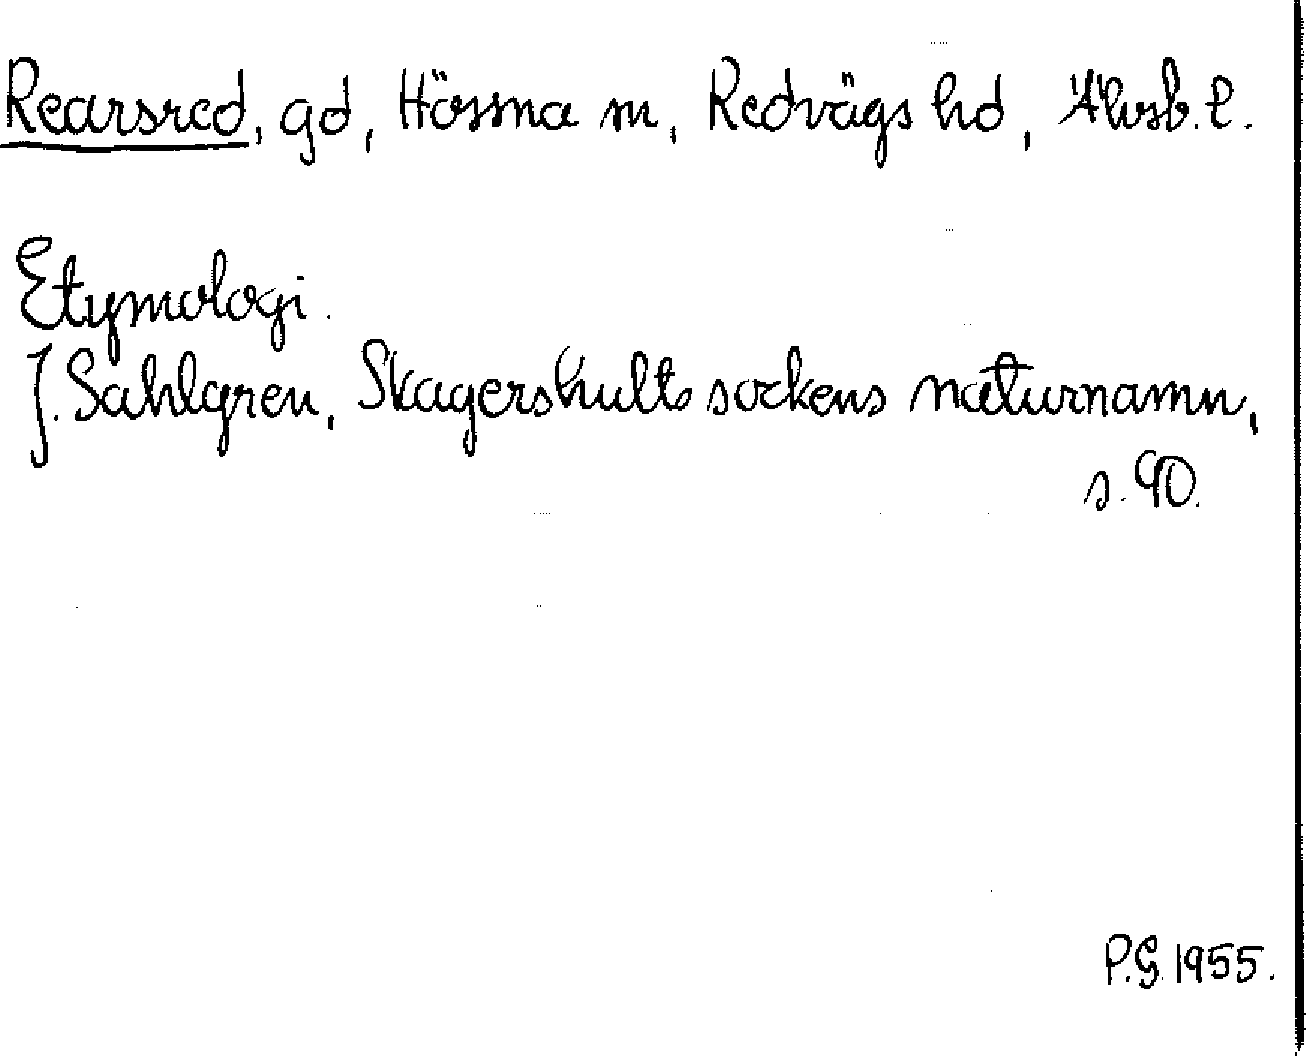 Rearsred, gd, Hössna sn, Redvägs hd, Älvsb. l.
Etymologi.
J. Sahlgren, Skagershults sockens naturnamn,
s. 90.
P.G. 1955.